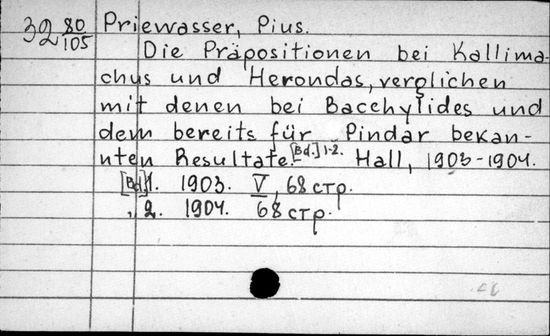 32 80/105 Priewasser, Pius.
Die Präpositionen bei Kallima-
chus und Herondas, verglichen
mit denen bei Bacchylides und
dem bereits für Pindar bekan-
nten Resultate. [Bd.] 1-2. Hall, 1903-1904.
[Bd.] 1. 1903. V, 68 стр.
„ 2. 1904. 68 стр.